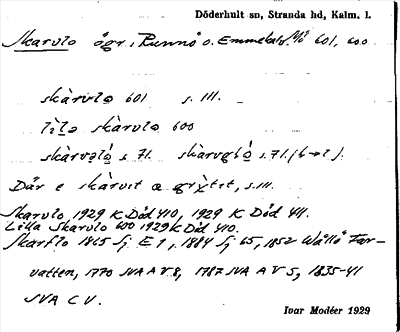 Döderhult sn, Stranda hd, Kalm. l.
Skarvlo ögr, Runnö o. Emmekalv. Nö 601, 600
skàrvlə 601 s. 111.
lìlə skàrvlə 600
skàrvəlǫ́ s. 71. skàrvglǫ́ s. 71. (
Där e skàrvıt æ grỳtıt, s. 111
Skarvlo 1929 K Död 410, 1929 K Död 411.
Lilla Skarvlo 600 1929 K Död 410.
Skarflo 1865 Sj E 1, 1884 Sj 65, 1852 Wållö Far-
vatten, 1770 SVA A V 8, 1787 SVA A V 5, 1835-41
SVA C V.
Ivar Modéer 1929